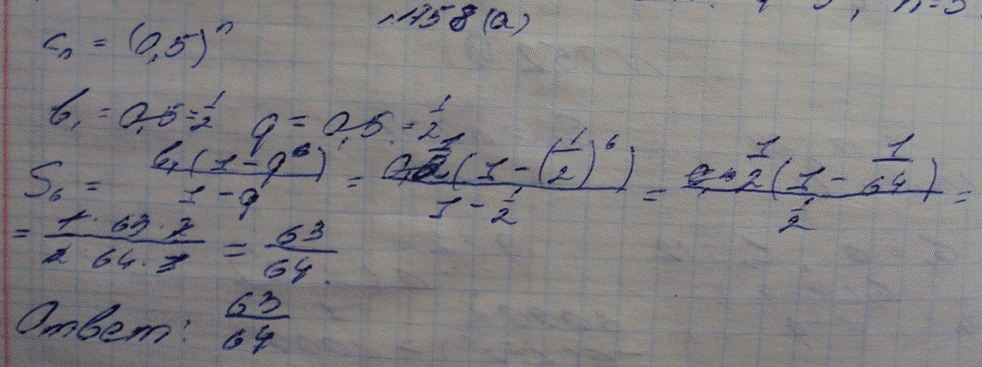 n=5
№458(а)
cₙ = (0,5)ⁿ
b₁ = 0,5 = 1/2 q = 0,5 = 1/2
S₆ = b₁(1-q⁶)/(1-q) = 1/2(1-(1/2)⁶)/(1-1/2) = 1/2(1-1/64)/(1/2) =
= (1·63·2)/(2·64·1) = 63/64.
Ответ: 63/64